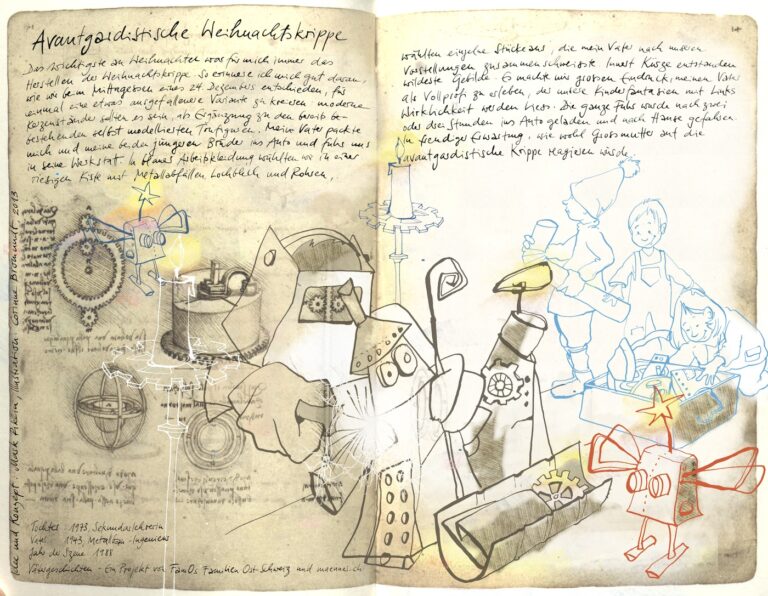 Avantgardistische Weihnachtskrippe
Das Wichtigste an Weihnachten war für mich immer das
Herstellen der Weihnachtskrippe. So erinnere ich mich gut daran,
wie wir beim Mittagessen eines 24. Dezembers entschieden, für
einmal eine etwas ausgefallenere Variante zu kreieren. moderne
Kerzenständer sollten es sein, als Ergänzung zu den bereits be-
bestehenden selbst modellierten Tonfiguren. Mein Vater packte
mich und meine beiden jüngeren Brüder ins Auto und fuhr uns
in seine Werkstat. In blauer Arbeitskleidung wühlten wir in einer
riesigen Kiste mit Metallabfällen Lochblech und Rohren,
wählten einzelne Stücke aus, die mein Vater nach unseren
Vorstellungen zusammenschweisste. Innert Kürze entstanden
wildeste Gebilde. Es machte mir grossen Eindruck, meinen Vater
als Vollprofi zu erleben, der unsere Kinderfantasien mit Links
Wirklichkeit werden liess. Die ganze Fuhr wurde nach zwei
oder drei Stunden ins Auto geladen und nach Hause gefahren.
In freudiger Erwartung, wie wohl Grossmutter auf die
avantgardistische Krippe reagieren würde.
Idee und Konzept: Mark Riklin, Illustration Corinne Bromundt, 2013
Tochter: 1973, Sekundarlehrerin
Vater: 1943, Metallbau-Ingenieur
Jahr der Szene: 1988
Vätergeschichten - Ein Projekt von FamOs Familien Ost-Schweiz und maenner.ch